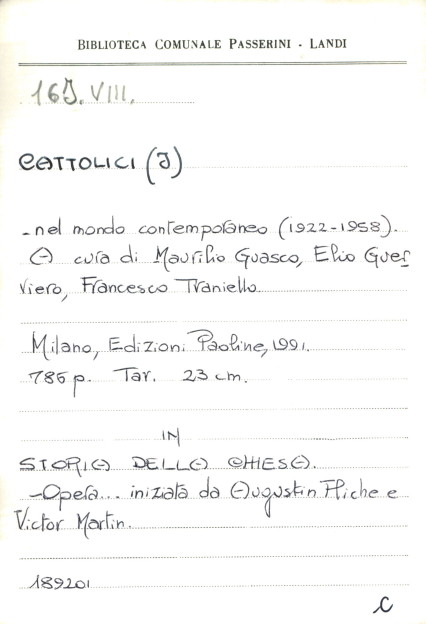 BIBLIOTECA COMUNALE PASSERINI - LANDI
16J.VIII.
CATTOLICI (I)
- nel mondo contemporaneo (1922-1958).
A cura di Maurilio Guasco, Elio Guer
riero, Francesco Traniello.
Milano, Edizioni Paoline, 1991.
785 p. Tav. 23 cm.
IN
STORIA DELLA CHIESA.
- Opera... iniziata da Augustin Fliche e
Victor Martin.
189201
C